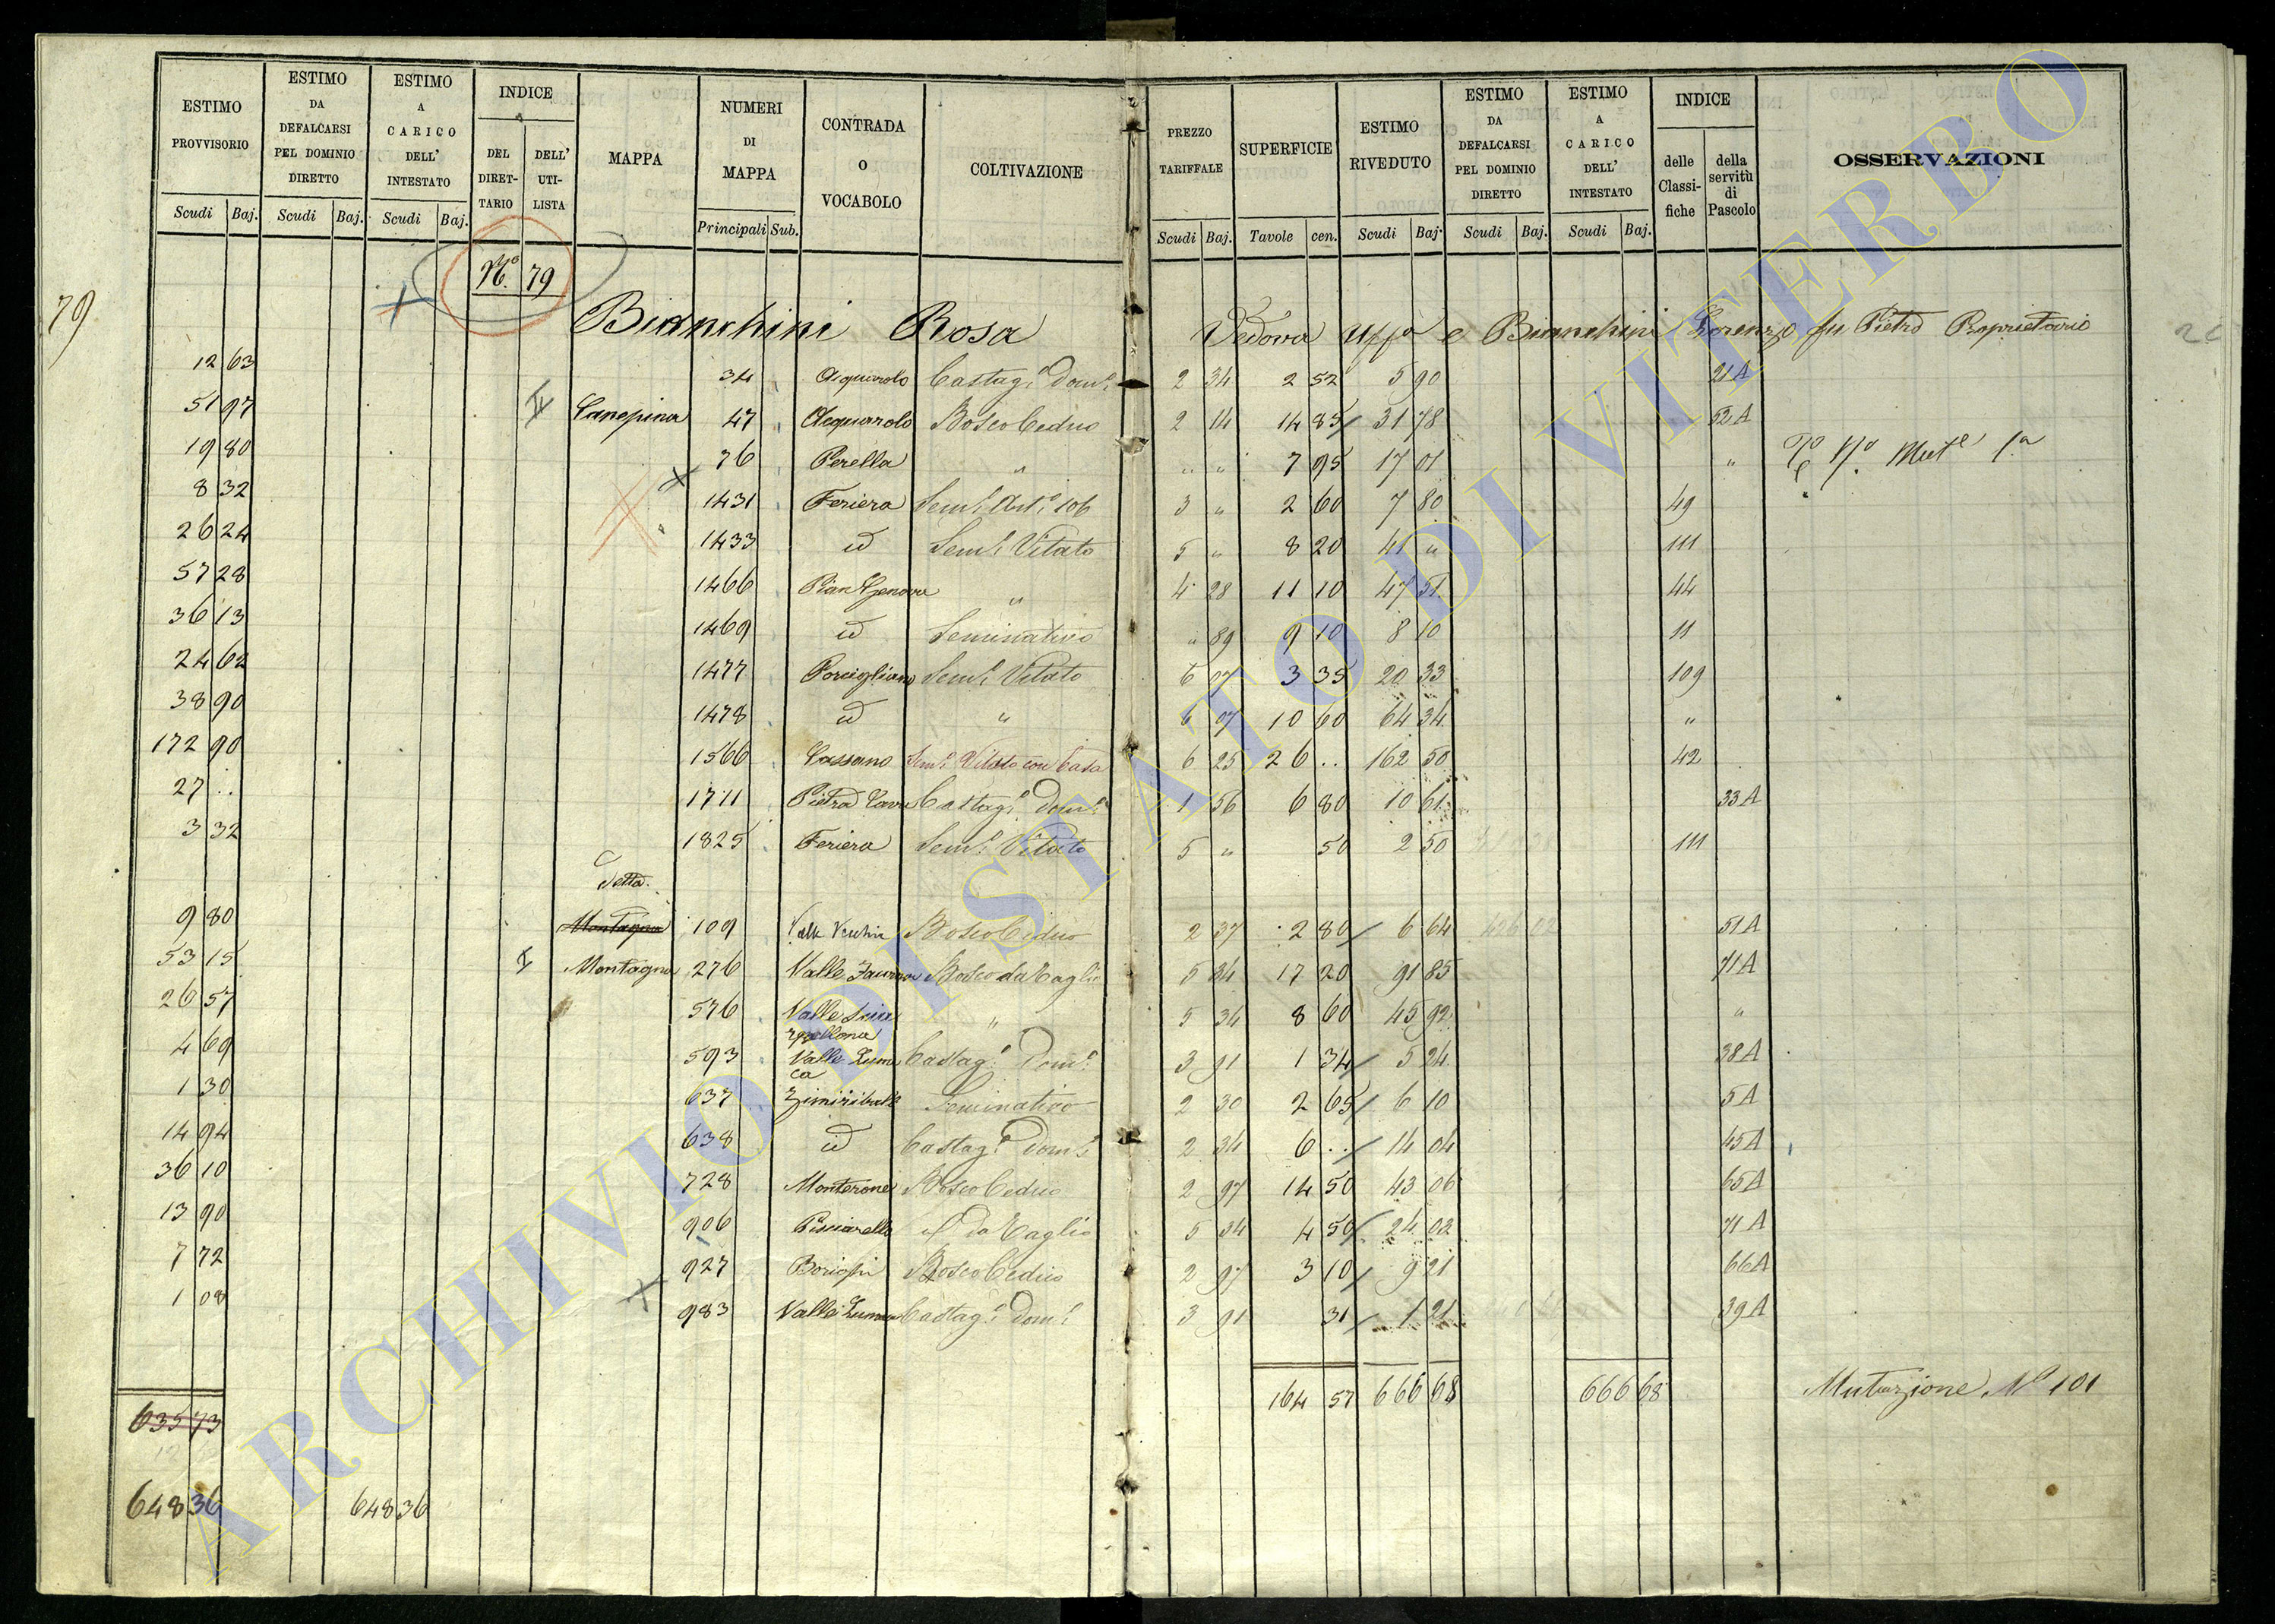 ESTIMO PROVVISORIO | ESTIMO DA DEFALCARSI PEL DOMINIO DIRETTO | ESTIMO A CARICO DELL' INTESTATO | INDICE | MAPPA | NUMERI DI MAPPA | CONTRADA O VOCABOLO | COLTIVAZIONE | PREZZO TARIFFALE | SUPERFICIE | ESTIMO RIVEDUTO | ESTIMO DA DEFALCARSI PEL DOMINIO DIRETTO | ESTIMO A CARICO DELL' INTESTATO | INDICE | OSSERVAZIONI
DEL DIRETTARIO | DELL' UTILISTA | delle Classifiche | della servitù di Pascolo
Scudi Baj. | Scudi Baj. | Scudi Baj. | Principali Sub. | Scudi Baj. | Tavole cen. | Scudi Baj. | Scudi Baj. | Scudi Baj.
79
N.º 79
Bianchini Rosa Vedova e Bianchini Lorenzo fu Pietro Proprietario
12 63 34 Acquarolo Castag.º Dom.º 2 34 2 52 5 90 21A
51 97 Canepina 47 Acquarolo Bosco Ceduo 2 14 14 85 31 78 52A
19 80 76 Perella " " " 7 95 17 01 "
8 32 1431 Feriera 3 " 2 60 7 80 49
26 24 1433 id Sem.º Vitato 5 " 8 20 41 " 111
57 28 1466 Pian Genova " 4 28 11 10 47 51 44
36 13 1469 id Seminativo " 89 9 10 8 10 11
24 62 1477 Porcigliano Sem.º Vitato 6 07 3 35 20 33 109
38 90 1478 id " 6 07 10 60 64 34 "
172 90 1566 Cassano Sem.º Vitato con Casa 6 25 26 .. 162 50 42
27 .. 1711 Pietra Cava Castag.º Dom.º 1 56 6 80 10 61 33A
3 32 1825 Feriera Sem.º Vitato 5 " 50 2 50 111
detta
9 80 Montagna 109 Valle Vecchia Bosco Ceduo 2 37 2 80 6 64 51A
53 15 Montagna 276 Valle Bosco da Taglio 5 34 17 20 91 85 71A
26 57 576 Valle " 5 34 8 60 45 92 "
4 69 593 Valle Zumaca Castag.º Dom.º 3 91 1 34 5 24 38A
1 30 637 Seminativo 2 30 2 65 6 10 5A
14 94 638 id Castag.º Dom.º 2 34 6 .. 14 04 45A
36 10 728 Monterone Bosco Ceduo 2 97 14 50 43 06 65A
13 90 906 Pisciarella da Taglio 5 34 4 50 24 03 71A
7 72 927 Bosco Ceduo 2 97 3 10 9 21 66A
1 08 983 Valle Castag.º Dom.º 3 91 31 1 21 39A
164 57 666 68 666 68 Mutazione Nº 101
635 73
648 36 648 36
ARCHIVIO DI STATO DI VITERBO